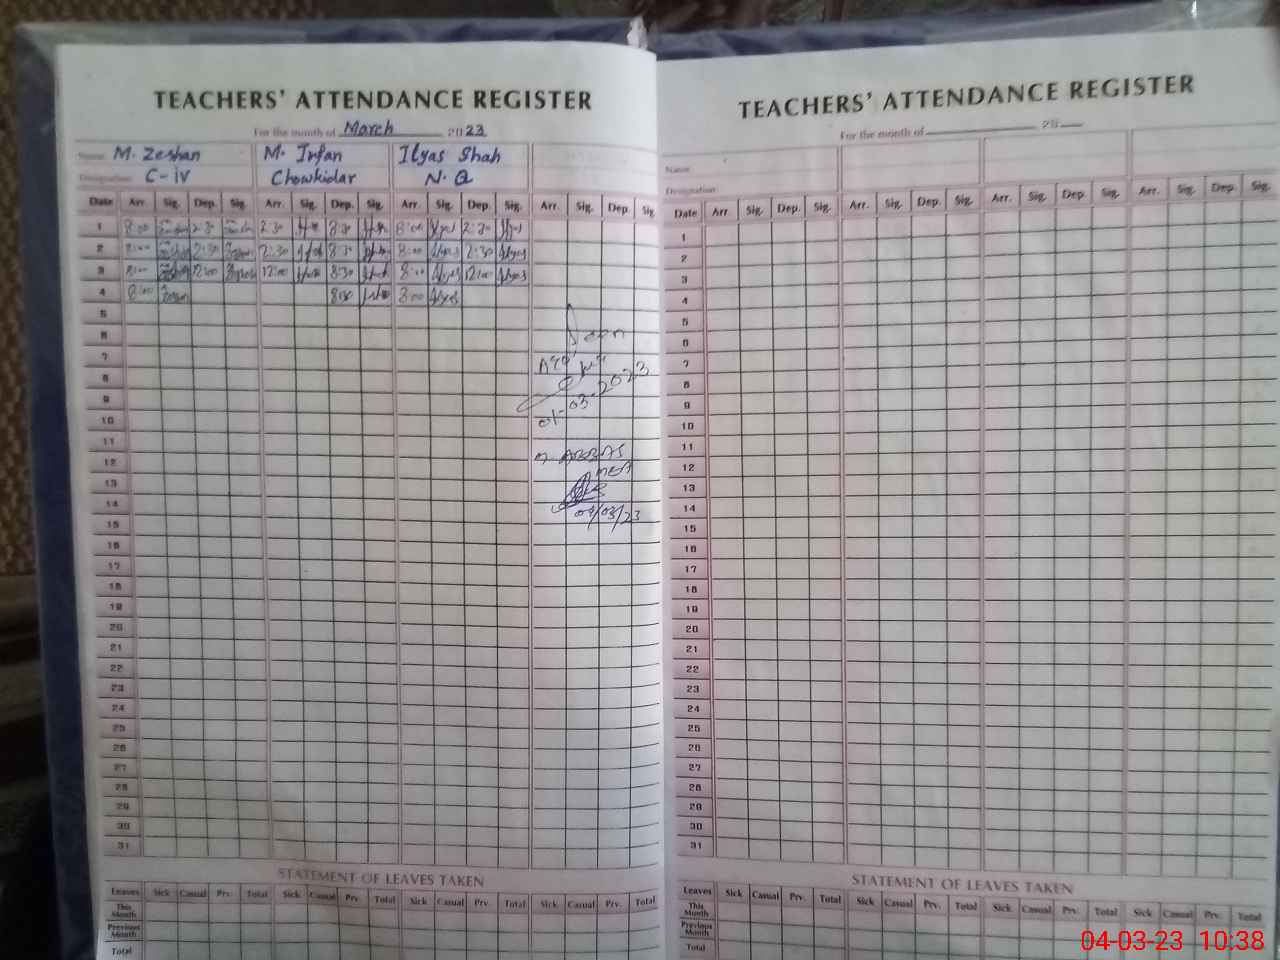 TEACHERS' ATTENDANCE REGISTER
For the month of March 2023
Name M. Zeshan M. Irfan Ilyas Shah
Designation C-iv Chowkidar N.Q
Date Arr. Sig. Dep. Sig. Arr. Sig. Dep. Sig. Arr. Sig. Dep. Sig. Arr. Sig. Dep. Sig
1 8:00 2:30 2:30 8:30 8:00 2:30
2 8:00 2:30 2:30 8:30 8:00 Ilyas 2:30 Ilyas
3 8:00 12:00 12:00 8:30 8:00 Ilyas 12:00 Ilyas
4 8:00 8:30 8:00 Ilyas
5
6
7
8
9
01-03-2023
10
11
12
MEA
13
14
04/03/23
15
16
17
18
19
20
21
22
23
24
25
26
27
28
29
30
31
STATEMENT OF LEAVES TAKEN
Leaves Sick Casual Prv. Total Sick Casual Prv. Total Sick Casual Prv. Total Sick Casual Prv. Total
This Month
Previous Month
Total
TEACHERS' ATTENDANCE REGISTER
For the month of 20
Name
Designation
Date Arr. Sig. Dep. Sig. Arr. Sig. Dep. Sig. Arr. Sig. Dep. Sig. Arr. Sig. Dep. Sig.
1
2
3
4
5
6
7
8
9
10
11
12
13
14
15
16
17
18
19
20
21
22
23
24
25
26
27
28
29
30
31
STATEMENT OF LEAVES TAKEN
Leaves Sick Casual Prv. Total Sick Casual Prv. Total Sick Casual Prv. Total Sick Casual Prv. Total
This Month
Previous Month
Total
04-03-23 10:38